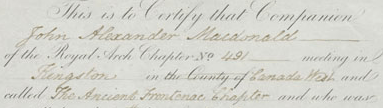 This is to Certify that Companion
John Alexander Macdonald
of the Royal Arch Chapter No 491 meeting in
Kingston in the County of Canada West and
called The Ancient Frontenac Chapter and who was